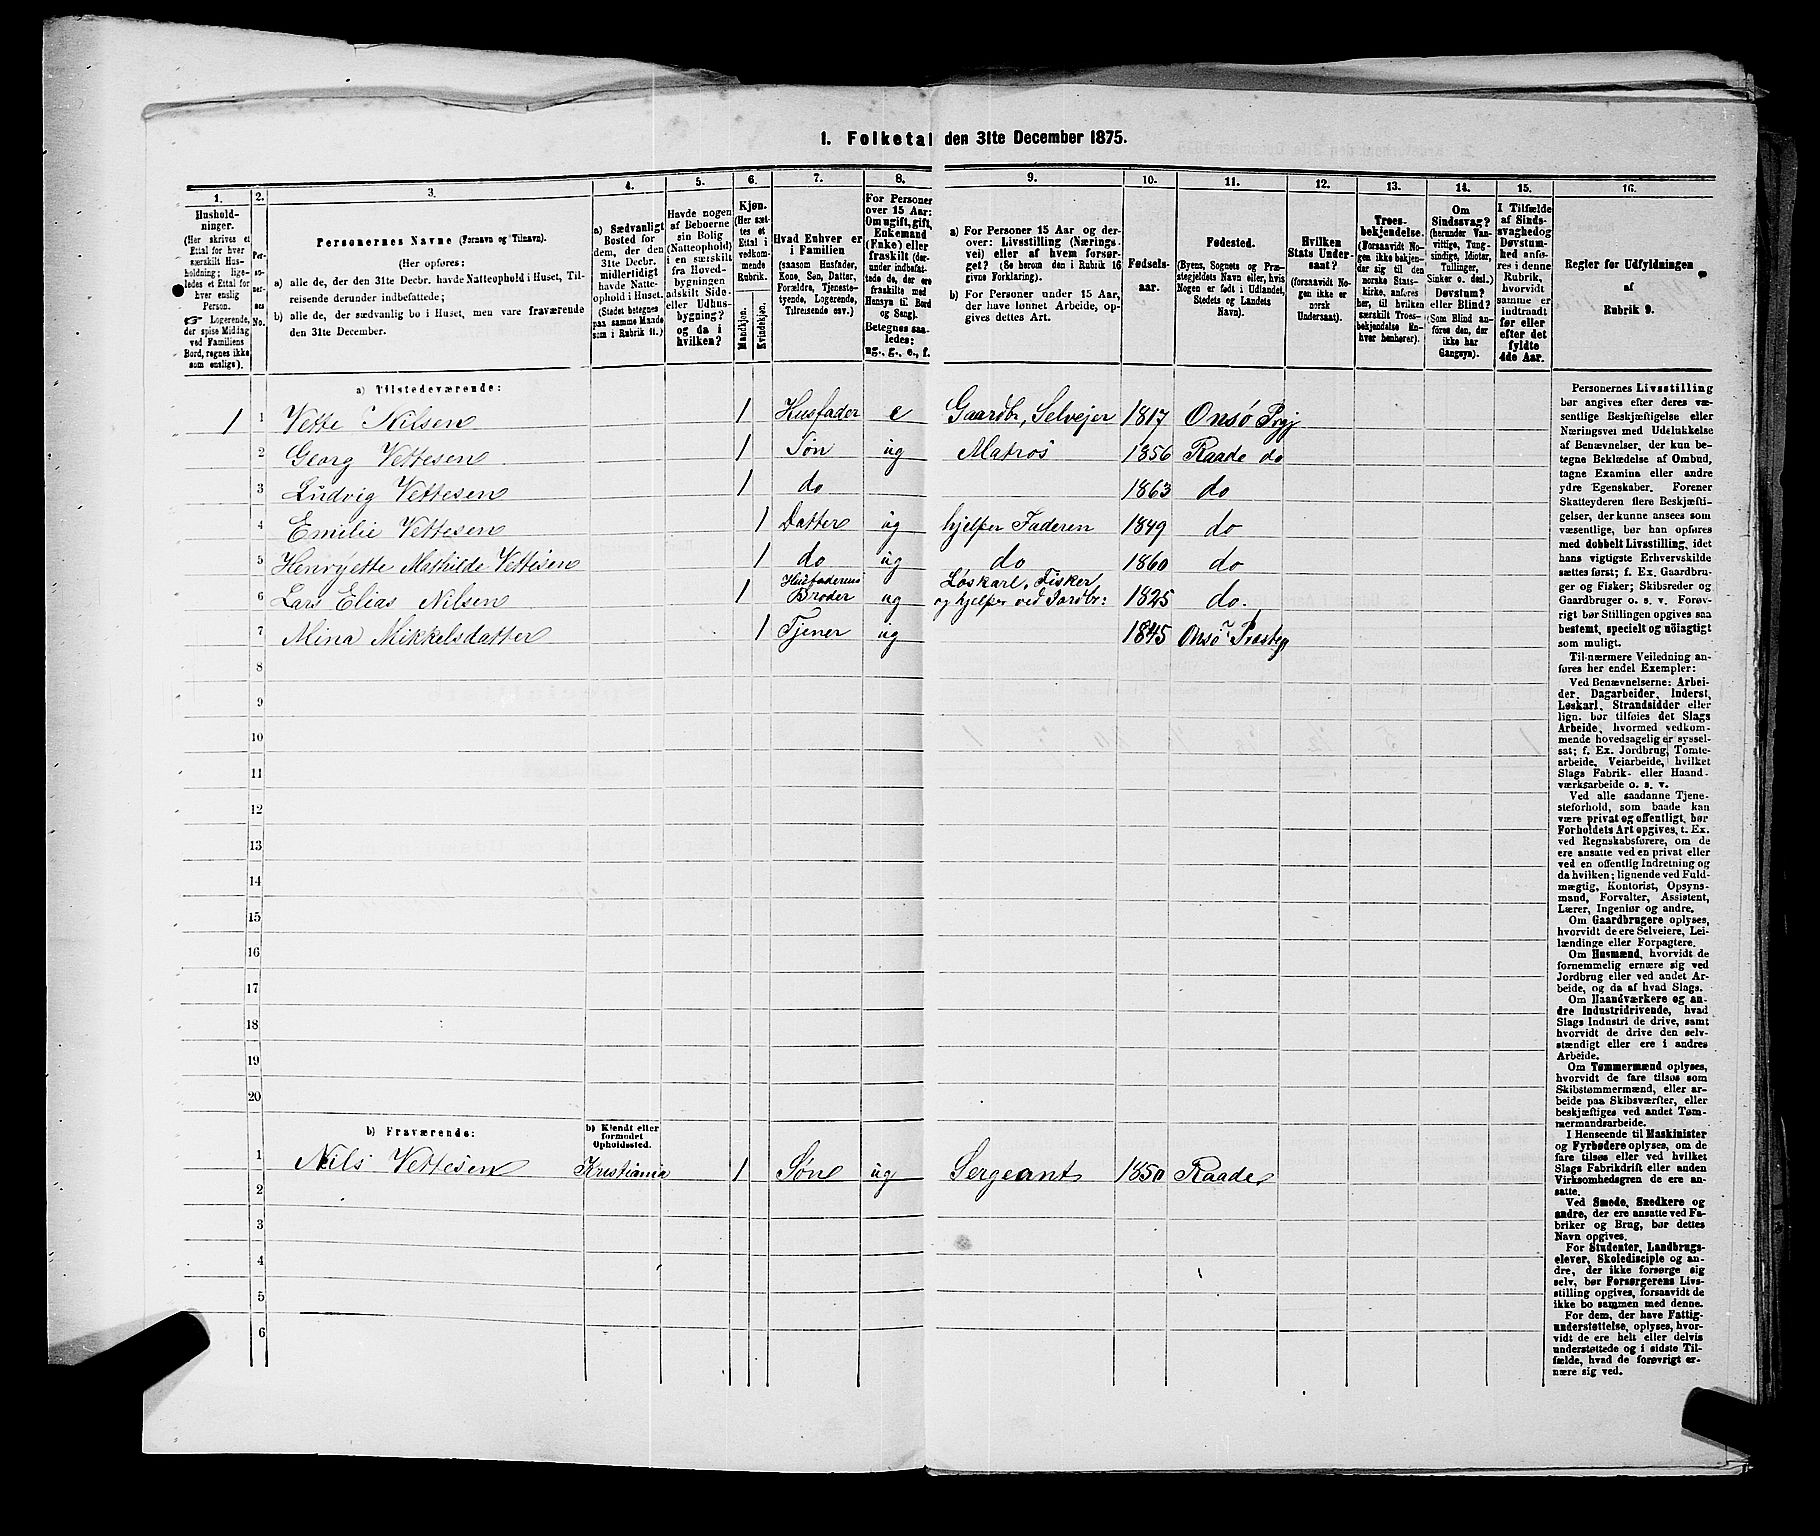 1. Folketal den 31te December 1875.
1.
Hushold-
ninger.
(Her skrives et
Ettal for hver
særskilt Hus-
holdning; lige-
ledes et Ettal for
hver enslig
Person.
☞ Logerende,
der spise Middag
ved Familiens
Bord, regnes ikke
som enslige).
2.
Per-
so-
ner-
nes
No.
3.
Personernes Navne (Fornavn og Tilnavn).
(Her opføres:
a) alle de, der den 31te Decbr. havde Natteophold i Huset, Til-
reisende derunder indbefattede;
b) alle de, der sædvanlig bo i Huset, men vare fraværende
den 31te December.
4.
a) Sædvanligt
Bosted for
dem, der den
31te Decbr.
midlertidigt
havde Natte-
ophold i Huset.
(Stedet betegnes
paa samme Maade
som i Rubrik 11.)
5.
Havde nogen
af Beboerne
sin Bolig
(Natteophold)
i en særskilt
fra Hoved-
bygningen
adskilt Side-
eller Udhus-
bygning?
og da i
hvilken?
6.
Kjøn.
(Her sæt-
tes et
Ettal i
vedkom-
mende
Rubrik.
Mandkjøn.
Kvindekjøn.
7.
Hvad Enhver er
i Familien
(saasom Husfader,
Kone, Søn, Datter,
Forældre, Tjeneste-
tyende, Logerende,
Tilreisende osv.)
8.
For Personer
over 15 Aar:
Om ugift, gift,
Enkemand
(Enke) eller
fraskilt (der-
under indbefat-
tede de, der ere
fraskilte med
Hensyn til Bord
og Seng).
Betegnes saa-
ledes:
ug., g., e., f.
9.
a) For Personer 15 Aar og der-
over: Livsstilling (Nærings-
vei) eller af hvem forsør-
get? (Se herom den i Rubrik 16
givne Forklaring).
b) For Personer under 15 Aar,
der have lønnet Arbeide, op-
gives dettes Art.
10.
Fødsels-
aar.
11.
Fødested.
(Byens, Sognets og Præ-
stegjeldets Navn eller, hvis
Nogen er født i Udlandet,
Stedets og Landets
Navn).
12.
Hvilken
Stats Under-
saat?
(forsaavidt No-
gen ikke er
norsk
Undersaat).
13.
Troes-
bekjendelse.
(Forsaavidt No-
gen ikke bekjen-
der sig til den
norske Stats-
kirke, anføres
her, til hvilken
særskilt Troes-
bekjendelse En-
hver henhører).
14.
Om
Sindssvag?
(herunder Van-
vittige, Tung-
sindige, Idioter,
Tullinger,
Sinker o. desl.)
Døvstum?
eller Blind?
(Som Blind an-
føres den, der
ikke har
Gangsyn).
15.
I Tilfælde
af Sinds-
svaghed og
Døvstum-
hed anfø-
res i denne
Rubrik,
hvorvidt
samme er
indtraadt
før eller
efter det
fyldte
4de Aar.
16.
Regler for Udfyldningen
af
Rubrik 9.
a) Tilstedeværende:
1 1 Vette Nilsen 1 Husfader e Gaardbr, Selvejer 1817 Onsø Prgj
2 Georg Vettesen 1 Søn ug Matros 1856 Raade do
3 Ludvig Vettesen 1 do 1863 do
4 Emilie Vettesen 1 Datter ug hjelper Faderen 1849 do
5 Henryette Mathilde Vettesen 1 do ug do 1860 do
6 Lars Elias Nilsen 1 Husfaderens Broder ug Løskarl, Fisker og hjelper ved Jordbr: 1825 do.
7 Mina Mikkelsdatter 1 Tjener ug 1845 Onsø Præsteg
8
9
10
11
12
13
14
15
16
17
18
19
20
b) Fraværende:
b) Kjendt eller
formodet
Opholdssted.
1 Nils Vettesen Kristiania 1 Søn ug Sergeant 1850 Raade
2
3
4
5
6
Personernes Livsstilling
bør angives efter deres væ-
sentlige Beskjæftigelse eller
Næringsvei med Udelukkelse
af Benævnelser, der kun be-
tegne Beklædelse af Ombud,
tagne Examina eller andre
ydre Egenskaber. Forener
Skatteyderen flere Beskjæfti-
gelser, der kunne ansees som
væsentlige, bør han opføres
med dobbelt Livsstilling, idet
hans vigtigste Erhvervskilde
sættes først; f. Ex. Gaardbru-
ger og Fisker; Skibsreder og
Gaardbruger o. s. v. Forøv-
rigt bør Stillingen opgives saa
bestemt, specielt og nöiagtigt
som muligt.
Til nærmere Veiledning an-
føres her endel Exempler:
Ved Benævnelserne: Arbei-
der, Dagarbeider, Inderst,
Løskarl, Strandsidder eller
lign. bør tilføies det Slags
Arbeide, hvormed vedkom-
mende hovedsagelig er syssel-
sat; f. Ex. Jordbrug, Tomte-
arbeide, Veiarbeide, hvilket
Slags Fabrik- eller Haand-
værksarbeide o. s. v.
Ved alle saadanne Tjene-
steforhold, som baade kan
være privat og offentligt, bør
Forholdets Art opgives, t. Ex.
ved Regnskabsførere, om de
ere ansatte ved en privat eller
ved en offentlig Indretning og
da hvilken; lignende ved Fuld-
mægtig, Kontorist, Opsyns-
mand, Forvalter, Assistent,
Lærer, Ingeniør og andre.
Om Gaardbrugere oplyses,
hvorvidt de ere Selveiere, Lei-
lændinge eller Forpagtere.
Om Husmænd, hvorvidt de
fornemmelig ernære sig ved
Jordbrug eller ved andet Ar-
beide, og da af hvad Slags.
Om Haandværkere og an-
dre Industridrivende, hvad
Slags Industri de drive, samt
hvorvidt de drive den selv-
stændigt eller ere i andres
Arbeide.
Om Tømmermænd oplyses,
hvorvidt de fare tilsøs som
Skibstømmermænd, eller ar-
beide paa Skibsværfter, eller
beskjæftiges ved andet Tøm-
mermandsarbeide.
I Henseende til Maskinister
og Fyrbødere oplyses, om de
fare tilsøs eller ved hvilket
Slags Fabrikdrift eller anden
Virksomhedsgren de ere an-
satte.
Ved Smede, Snedkere og
andre, der ere ansatte ved Fa-
briker og Brug, bør dettes
Navn opgives.
For Studenter, Landbrugs-
elever, Skoledisciple og an-
dre, der ikke forsørge sig
selv, bør Forsørgerens Livs-
stilling opgives, forsaavidt de
ikke bo sammen med denne.
For dem, der have Fattig-
understøttelse, oplyses, hvor-
vidt de ere helt eller delvis
understøttede og i sidste Til-
fælde, hvad de forøvrigt er-
nære sig ved.